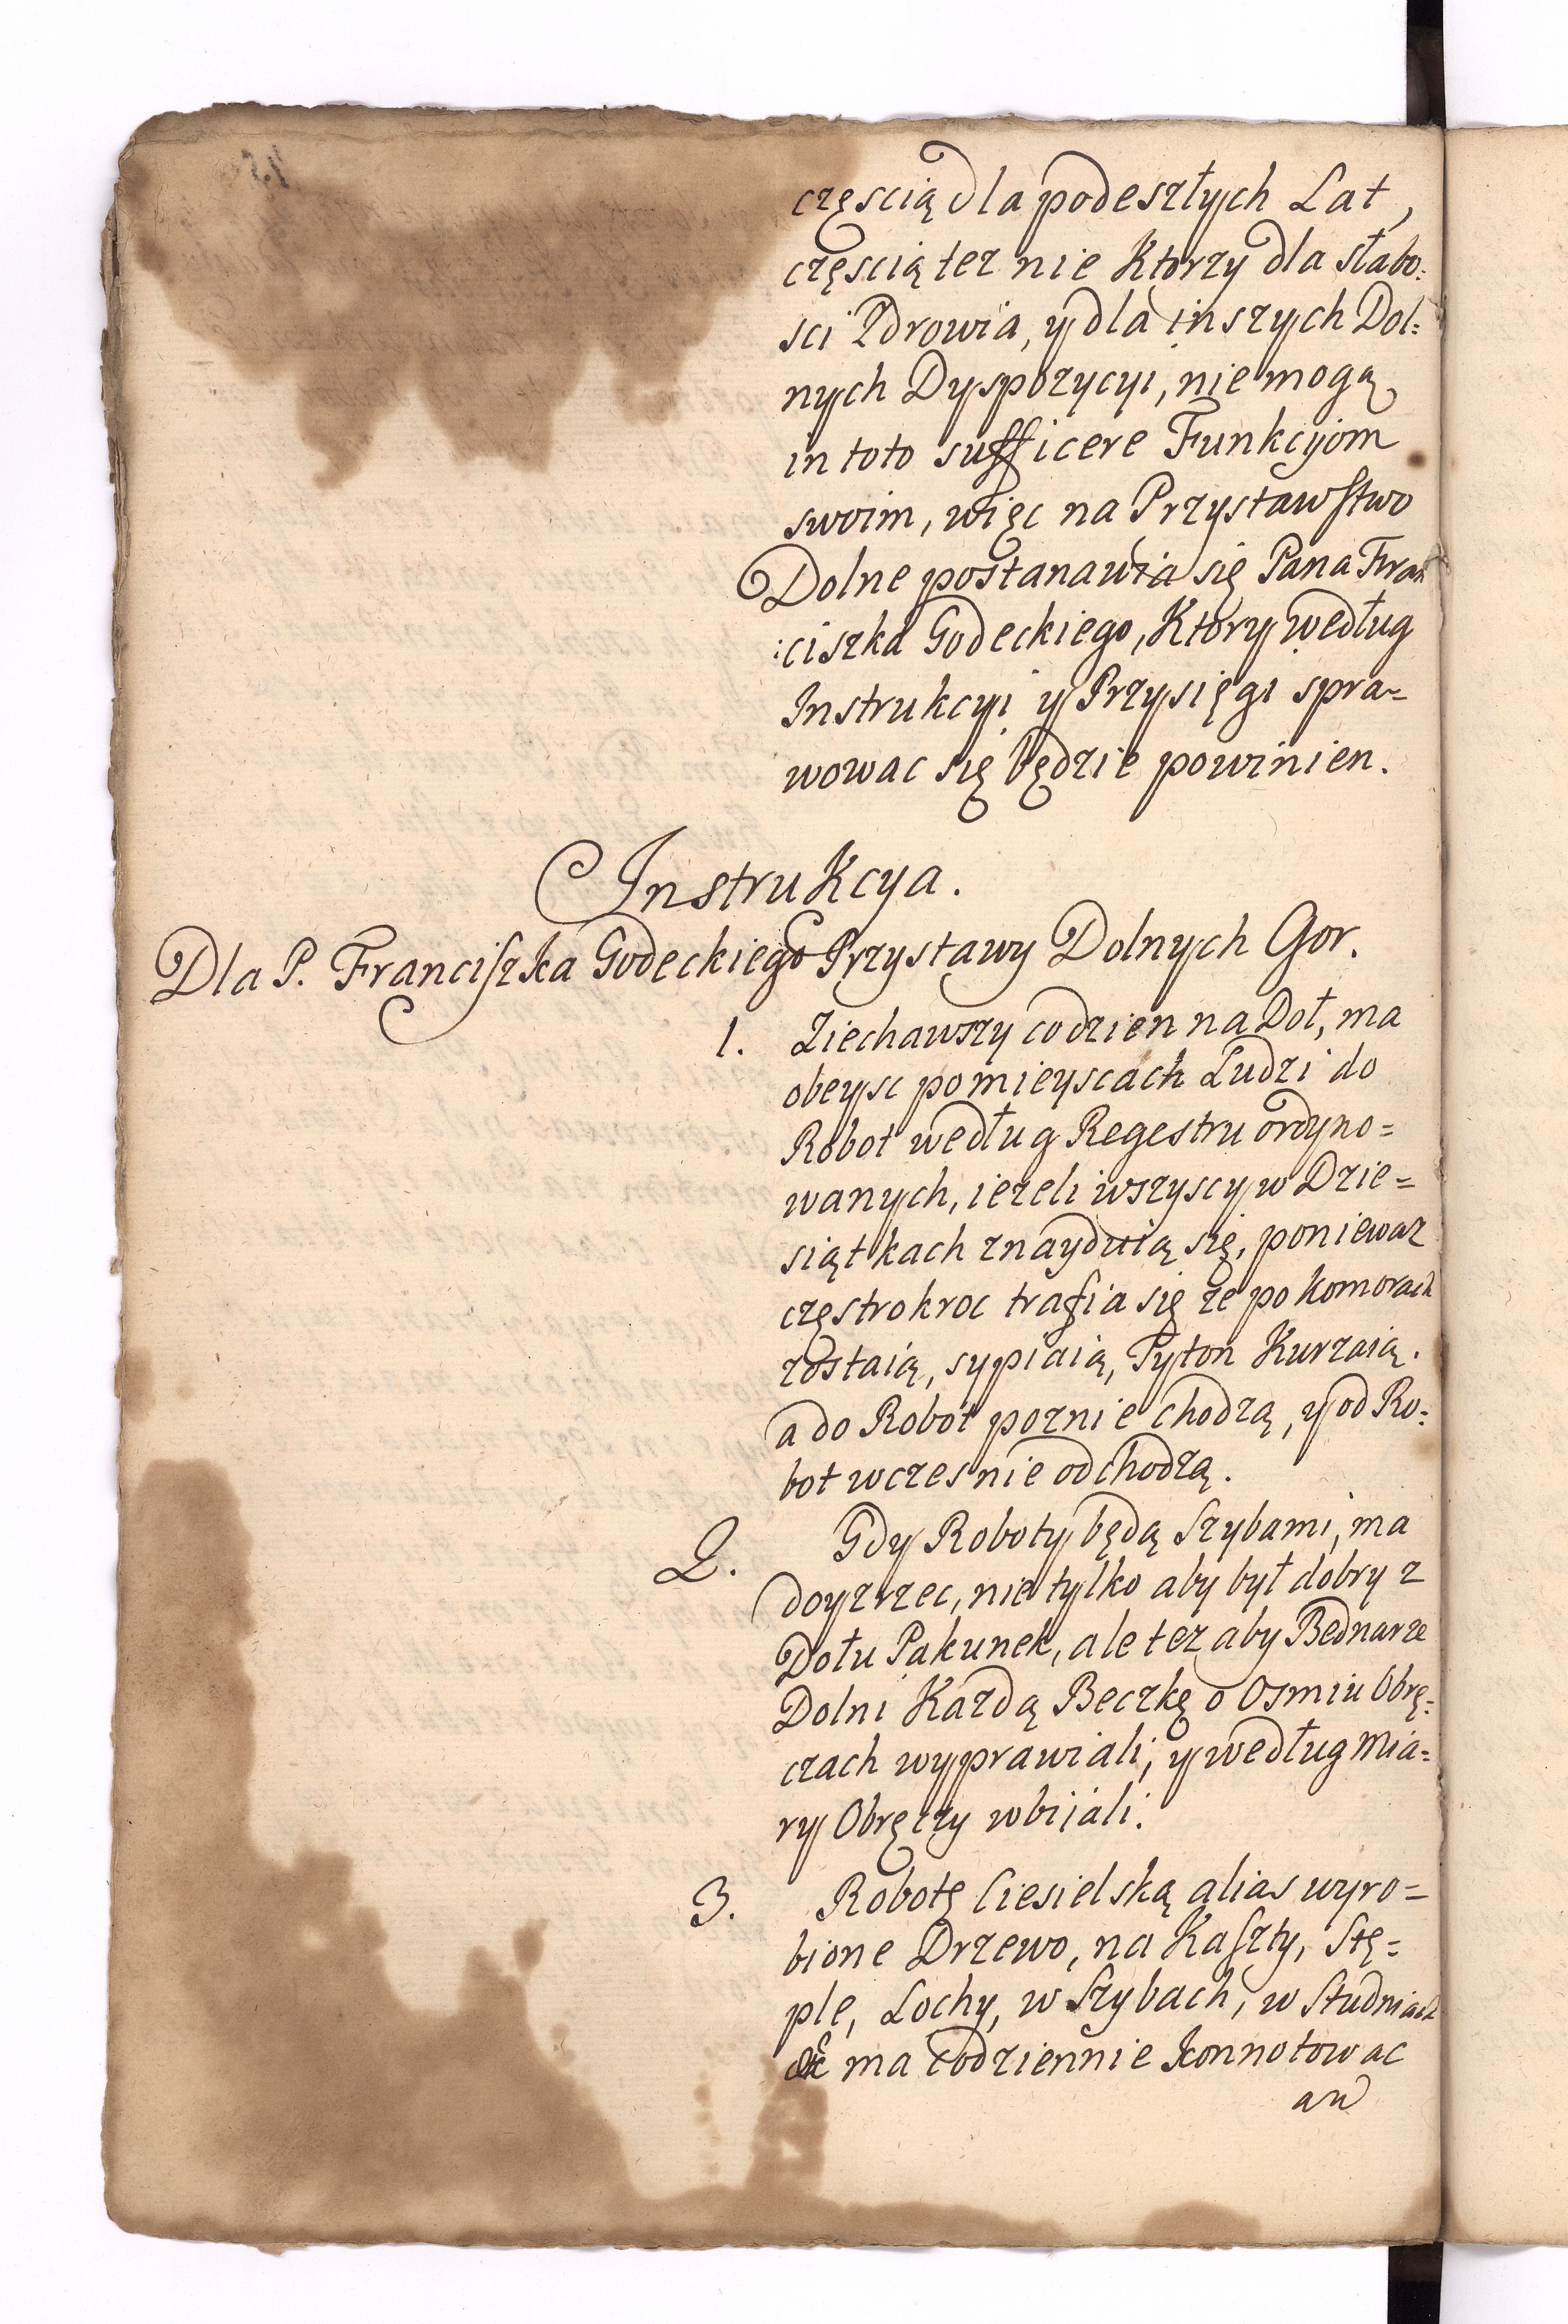 częscią dla podeszłych Lat,
częscią tez nie Ktorzy dla słabo:
sci Zdrowia, y dla inszych Dol:
nych Dyspozycyi, nie mogą
in toto sufficere Funkcyiom
swoim, więc na Przystawstwo
Dolne postanawia się Pana Fran
:ciszka Godeckiego, Ktory według
Instrukcyi y Przysięgi spra=
wowac się będzie powinien.
Instrukcya.
Dla P. Franciszka Godeckiego Przystawy Dolnych Gor.
1. Ziechawszy codzien na Doł, ma
obeysc po mieyscach Ludzi do
Robot według Regestru ordyno=
wanych, iezeli wszyscy w Dzie=
siątkach znayduią się, poniewaz
częstrokroc trafia się ze po Komorach
zostaią, sypiaią, Tyton Kurzaią.
a do Robot poznie chodzą, y od Ro:
bot wczesnie odchodzą.
2. Gdy Roboty będą Szybami, ma
doyzrzec, nie tylko aby był dobry z
Dołu Pakunek, ale tez aby Bednarze
Dolni Kazdą Beczkę o Osmiu Obrę:
czach wyprawiali, y według Mia=
ry Obręczy wbiiali.
3. Robotę Ciesielską alias wyro=
bione Drzewo, na Kaszty, Stę=
ple, Lochy, w Szybach, w Studniach
&c ma codziennie konnotowac